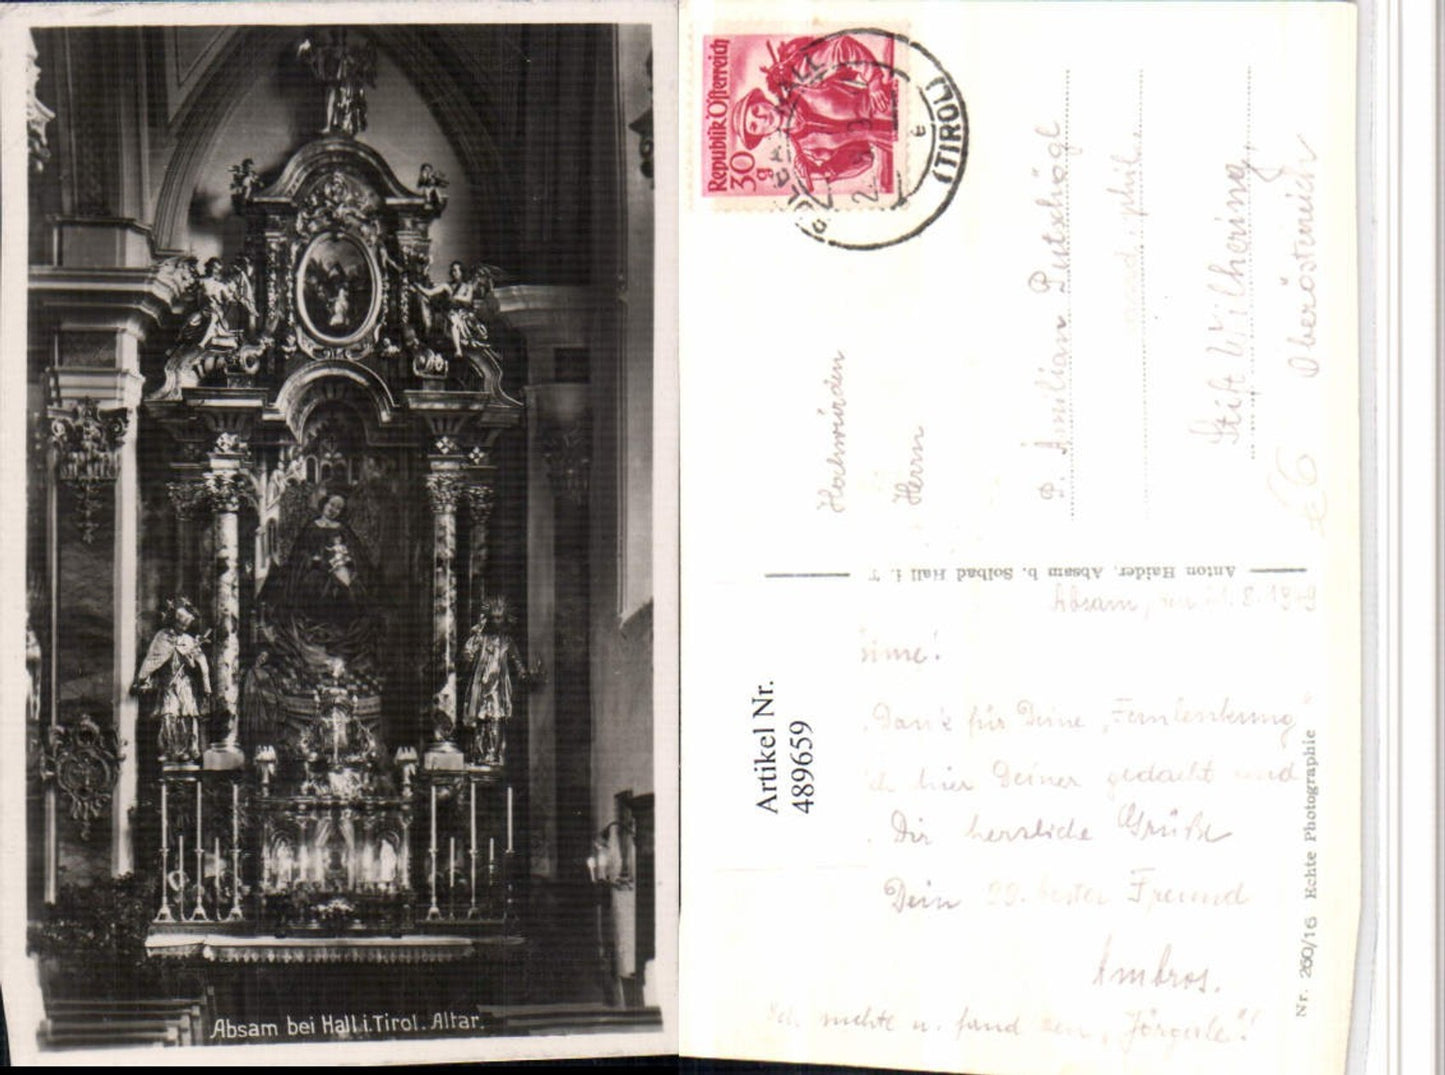 Absam bei Hall i. Tirol. Altar.
Republik Österreich
30 g
(TIROL)
Hochwürden
Herrn
P. Ämilian
Stift Wilhering,
Oberösterreich
Anton Haider, Absam b. Solbad Hall i. T
Absam, 8. 1949
Artikel Nr.
489659
Dank für Deine „Fernlenkung"
hier Deiner gedacht und
Dir herzliche Grüße
Dein bester Freund
Ambros.
suchte u. fand den „Jörgele"!
Nr. 260/16 Echte Photographie